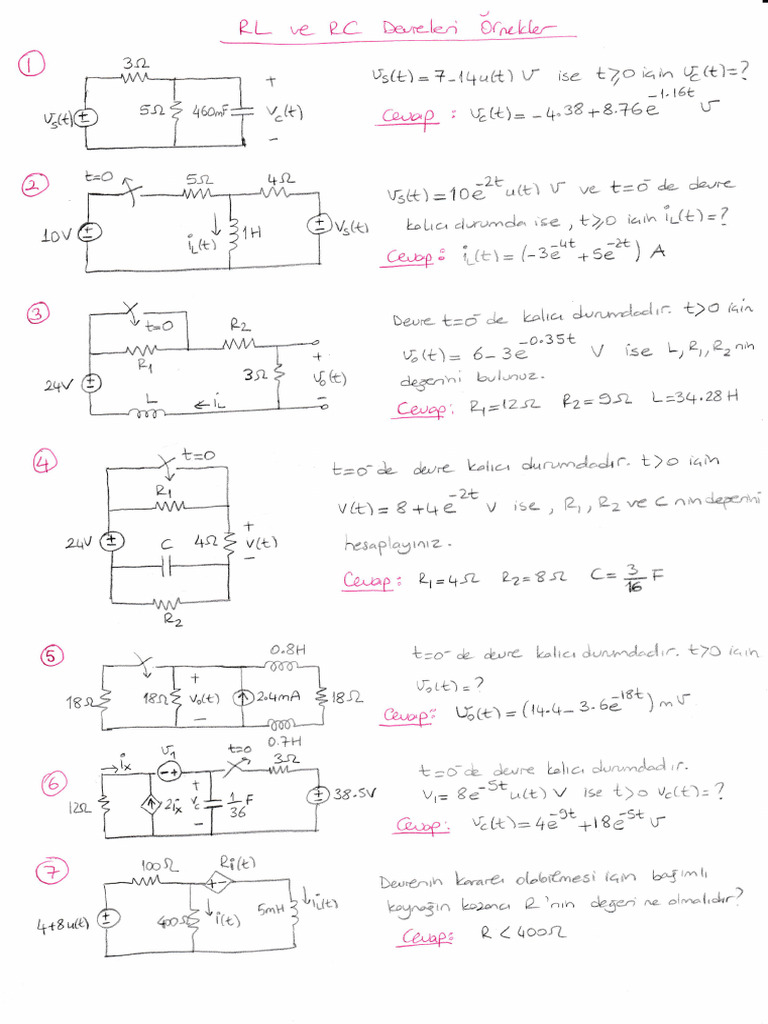 RL ve RC Devreleri Örnekler
1
3Ω
5Ω
460mF
Vs(t)
+
Vc(t)
−
Vs(t) = 7-14u(t) V ise t≥0 için Vc(t)=?
Cevap : Vc(t) = -4.38+8.76e^-1.16t V
2
t=0
5Ω
4Ω
10V
iL(t)
1H
Vs(t)
Vs(t)=10e^-2t u(t) V ve t=0⁻ de devre
kalıcı durumda ise, t≥0 için iL(t)=?
Cevap: iL(t) = (-3e^-4t + 5e^-2t) A
3
t=0
R1
R2
24V
3Ω
+
Vo(t)
−
L
iL
Devre t=0⁻ de kalıcı durumdadır. t>0 için
Vo(t) = 6-3e^-0.35t V ise L, R1, R2 nin
değerini bulunuz.
Cevap: R1=12Ω R2=9Ω L=34.28H
4
t=0
R1
24V
C
4Ω
+
V(t)
−
R2
t=0⁻ de devre kalıcı durumdadır. t>0 için
V(t) = 8+4e^-2t V ise, R1, R2 ve C nin değerini
hesaplayınız.
Cevap: R1=4Ω R2=8Ω C=3/16 F
5
0.8H
18Ω
18Ω
+
Vo(t)
−
2.4mA
18Ω
0.7H
t=0⁻ de devre kalıcı durumdadır. t>0 için
Vo(t)=?
Cevap: Vo(t) = (14.4-3.6e^-18t) mV
6
ix
V1
t=0
3Ω
12Ω
2ix
+
Vc
−
1/36 F
38.5V
t=0⁻ de devre kalıcı durumdadır.
V1 = 8e^-5t u(t) V ise t>0 Vc(t)=?
Cevap: Vc(t) = 4e^-9t + 18e^-5t V
7
100Ω
Ri(t)
4+8u(t)
400Ω
i(t)
5mH
iL(t)
Devrenin kararlı olabilmesi için bağımlı
kaynağın kazancı R'nın değeri ne olmalıdır?
Cevap: R < 400Ω